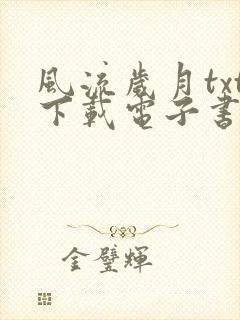 風流歲月txt
下載電子書
金璧輝